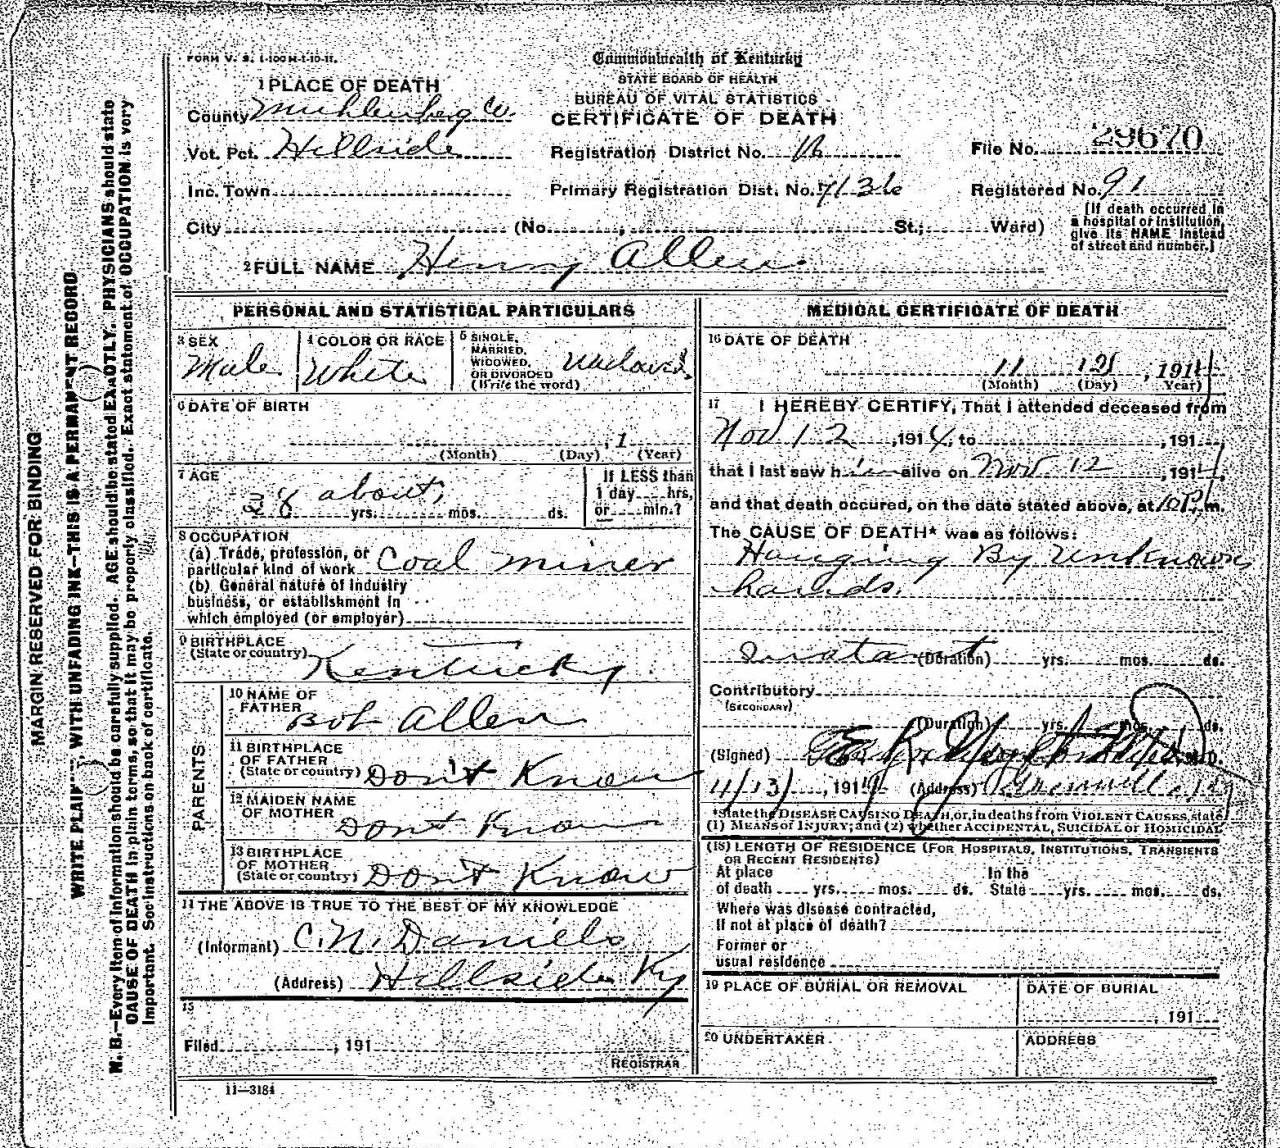 FORM V. S. 1-100M-1-10-11.
Commonwealth of Kentucky
STATE BOARD OF HEALTH
BUREAU OF VITAL STATISTICS
CERTIFICATE OF DEATH
1 PLACE OF DEATH
County Muhlenberg Co.
Vot. Pct. Hillside
Inc. Town
City (No. , St.; Ward)
Registration District No.
Primary Registration Dist. No. 7136
File No. 29670
Registered No. 91
[If death occurred in
a hospital or institution,
give its NAME instead
of street and number.]
2 FULL NAME Henry Allen
PERSONAL AND STATISTICAL PARTICULARS
3 SEX
Male
4 COLOR OR RACE
White
5 SINGLE,
MARRIED,
WIDOWED,
OR DIVORCED
(Write the word)
6 DATE OF BIRTH
, 1
(Month) (Day) (Year)
7 AGE
28 about,
yrs. mos. ds.
If LESS than
1 day hrs,
or min.?
8 OCCUPATION
(a) Trade, profession, or
particular kind of work Coal miner
(b) General nature of industry
business, or establishment in
which employed (or employer)
9 BIRTHPLACE
(State or country) Kentucky
PARENTS.
10 NAME OF
FATHER Bob Allen
11 BIRTHPLACE
OF FATHER
(State or country) Don't Know
12 MAIDEN NAME
OF MOTHER Don't Know
13 BIRTHPLACE
OF MOTHER
(State or country) Don't Know
14 THE ABOVE IS TRUE TO THE BEST OF MY KNOWLEDGE
(Informant) C.N. Daniels
(Address) Hillside Ky
15
Filed , 191
REGISTRAR
11—3184
MEDICAL CERTIFICATE OF DEATH
16 DATE OF DEATH
11 12, 1914
(Month) (Day) Year)
17 I HEREBY CERTIFY, That I attended deceased from
Nov 12, 1914, to , 191
that I last saw him alive on Nov 12, 1914
and that death occured, on the date stated above, at 10 P. m.
The CAUSE OF DEATH* was as follows:
Hanging By unknown
hands.
instant (Duration) yrs. mos. ds.
Contributory
(SECONDARY)
(Duration) yrs. mos. ds.
(Signed) M.D.
11/13/, 1914 (Address) Greenville Ky
*State the DISEASE CAUSING DEATH, or, in deaths from VIOLENT CAUSES, state
(1) MEANS OF INJURY; and (2) whether ACCIDENTAL, SUICIDAL or HOMICIDAL
(18) LENGTH OF RESIDENCE (FOR HOSPITALS, INSTITUTIONS, TRANSIENTS
OR RECENT RESIDENTS)
At place In the
of death yrs. mos. ds. State yrs. mos. ds.
Where was disease contracted,
If not at place of death?
Former or
usual residence
19 PLACE OF BURIAL OR REMOVAL
DATE OF BURIAL
, 191
20 UNDERTAKER
ADDRESS
MARGIN RESERVED FOR BINDING
WRITE PLAIN WITH UNFADING INK—THIS IS A PERMANENT RECORD
N. B.—Every item of information should be carefully supplied. AGE should be stated EXACTLY. PHYSICIANS should state
CAUSE OF DEATH in plain terms, so that it may be properly classified. Exact statement of OCCUPATION is very
important. See instructions on back of certificate.